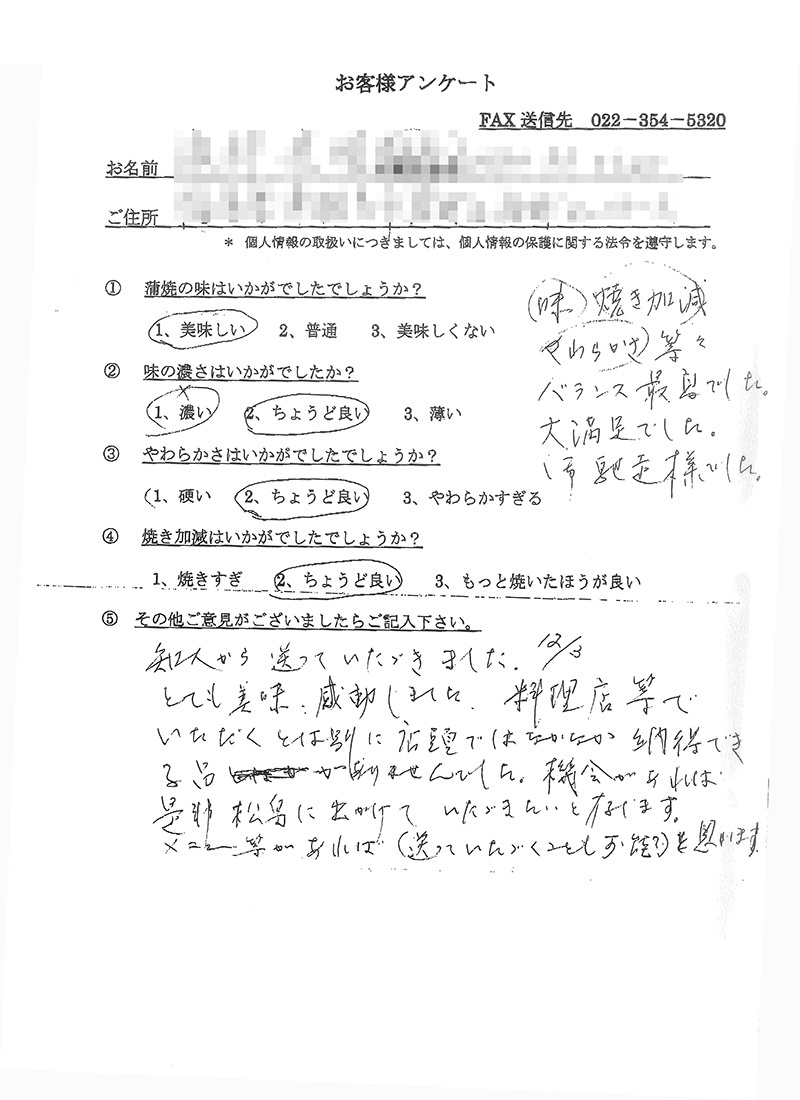 お客様アンケート
FAX 送信先　022－354－5320
お名前
ご住所
＊ 個人情報の取扱いにつきましては、個人情報の保護に関する法令を遵守します。
① 蒲焼の味はいかがでしたでしょうか？
1、美味しい　2、普通　3、美味しくない
② 味の濃さはいかがでしたか？
1、濃い　2、ちょうど良い　3、薄い
③ やわらかさはいかがでしたでしょうか？
1、硬い　2、ちょうど良い　3、やわらかすぎる
④ 焼き加減はいかがでしたでしょうか？
1、焼きすぎ　2、ちょうど良い　3、もっと焼いたほうが良い
味 焼き加減
やわらかさ 等々
バランス最高でした。
大満足でした。
御馳走様でした。
⑤ その他ご意見がございましたらご記入下さい。
知人から送っていただきました。 12/3
とても美味、感動しました。料理店等で
いただくとは別に店頭ではなかなか納得でき
る品がありませんでした。機会があれば
是非松島に出かけていただきたいと存じます。
メニュー等があれば（送っていただくことも可能）と思います